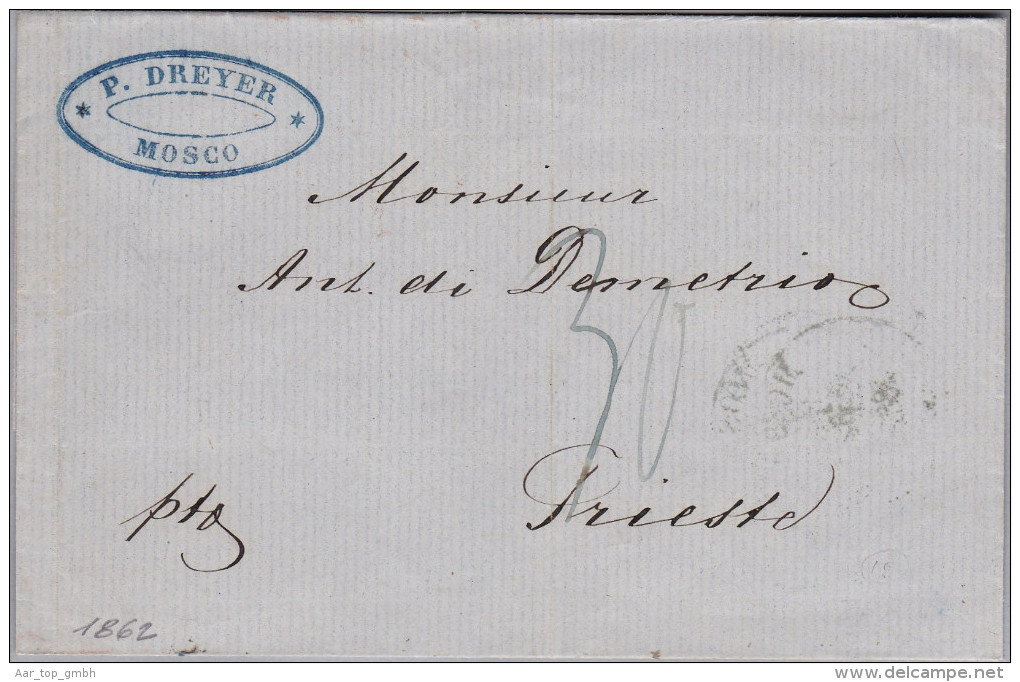 * P. DREYER *
MOSCO
Monsieur
Ant. di Demetrio
30
Trieste
pto
1862
Aar_top_gmbh
www.delcampe.net